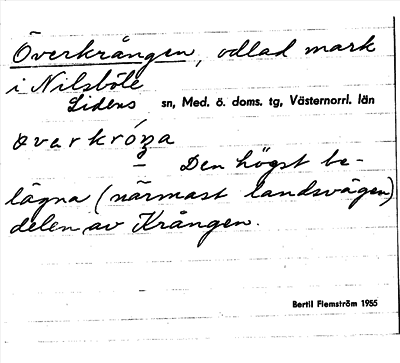 Överkrången, odlad mark
i Nilsböle
Lidens sn, Med. ö. doms. tg, Västernorrl. län
øvarkróŋa
Den högst be-
lägna (närmast landsvägen)
delen av Krången.
Bertil Flemström 1955